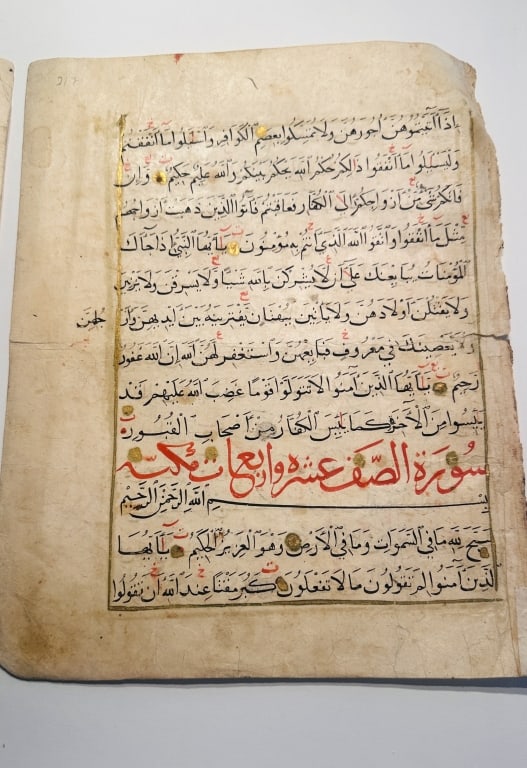 إذا آتيتموهن أجورهن ولا تمسكوا بعصم الكوافر وأسئلوا ما أنفقتم
وليسئلوا ما أنفقوا ذالكم حكم الله يحكم بينكم والله عليم حكيم وإن
فاتكم شئ من أزواجكم إلى الكفار فعاقبتم فآتوا الذين ذهبت أزواجهم
مثل ما أنفقوا واتقوا الله الذي أنتم به مؤمنون يا أيها النبي إذا جاءك
المؤمنات يبايعنك على أن لا يشركن بالله شيئا ولا يسرقن ولا يزنين
ولا يقتلن أولادهن ولا يأتين ببهتان يفترينه بين أيديهن وأر
جلهن
ولا يعصينك في معروف فبايعهن واستغفر لهن الله إن الله غفور
رحيم يا أيها الذين آمنوا لا تتولوا قوما غضب الله عليهم قد
يئسوا من الآخرة كما يئس الكفار من أصحاب القبور
سورة الصف عشره واربع ايات مكية
بسم الله الرحمن الرحيم
سبح لله ما في السموات وما في الأرض وهو العزيز الحكيم يا أيها
الذين آمنوا لم تقولون ما لا تفعلون كبر مقتا عند الله أن تقولوا